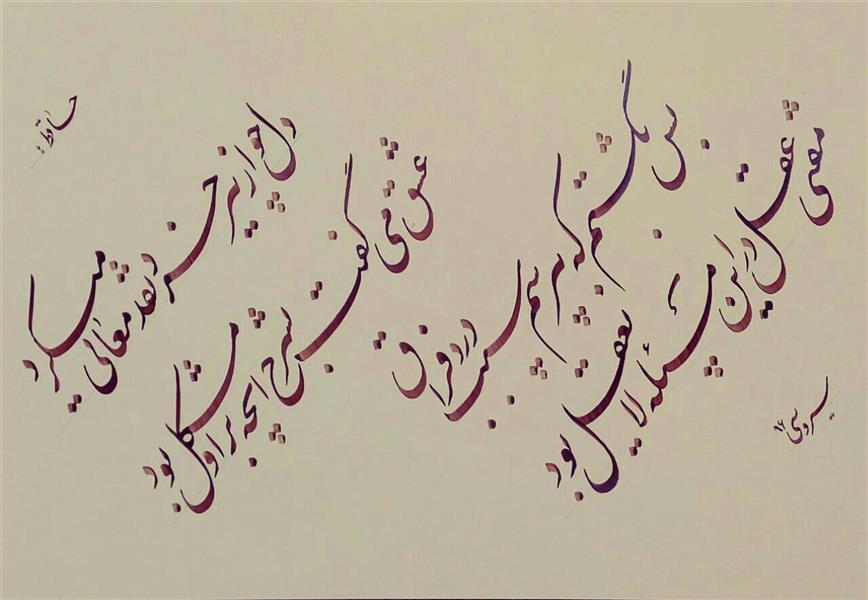 بس بگشتم که بپرسم سبب درد فراق
مفتی عقل در این مسئله لایعقل بود
دل چو از پیر خرد نقد معانی میکرد
عشق می گفت بشرح آنچه بر او مشکل بود
حافظ
۹۶